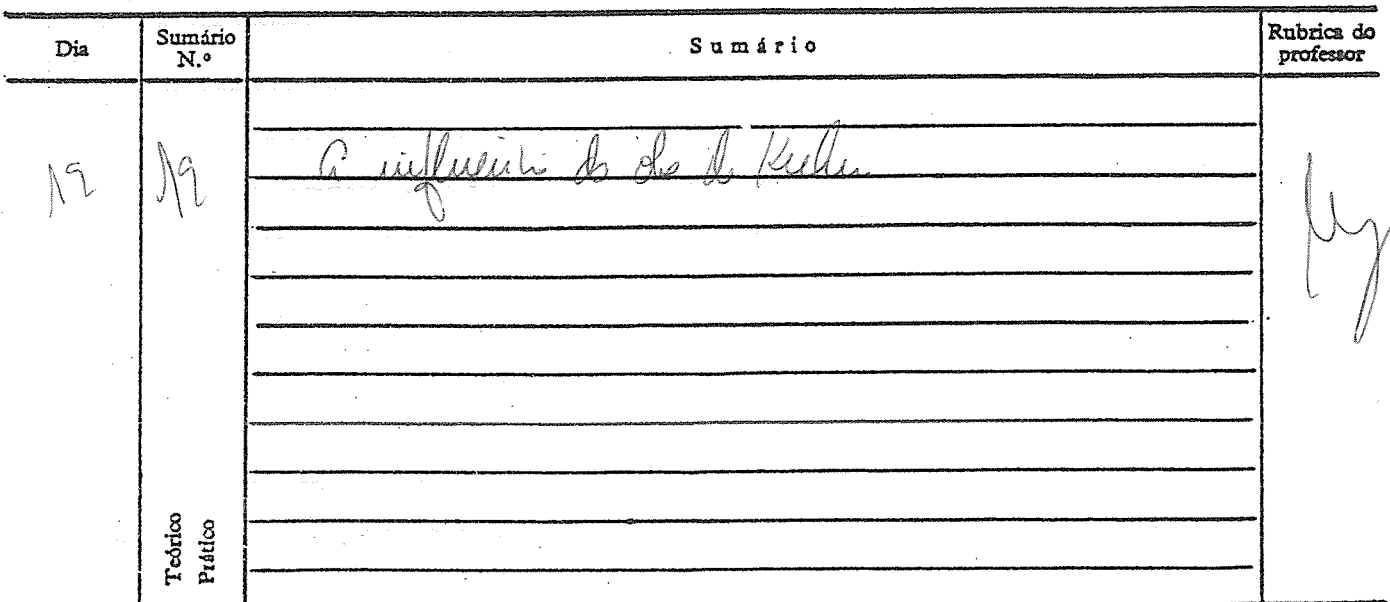 Dia
Sumário N.º
Sumário
Rubrica do professor
19
19
A influência da obra de
Teórico
Prático